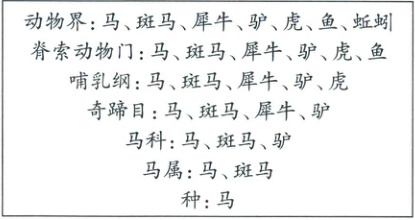 动物界:马、斑马、犀牛、驴、虎、鱼、蚯蚓
脊索动物门:马、斑马、犀牛、驴、虎、鱼
哺乳纲:马、斑马、犀牛、驴、虎
奇蹄目:马、斑马、犀牛、驴
马科:马、斑马、驴
马属:马、斑马
种:马